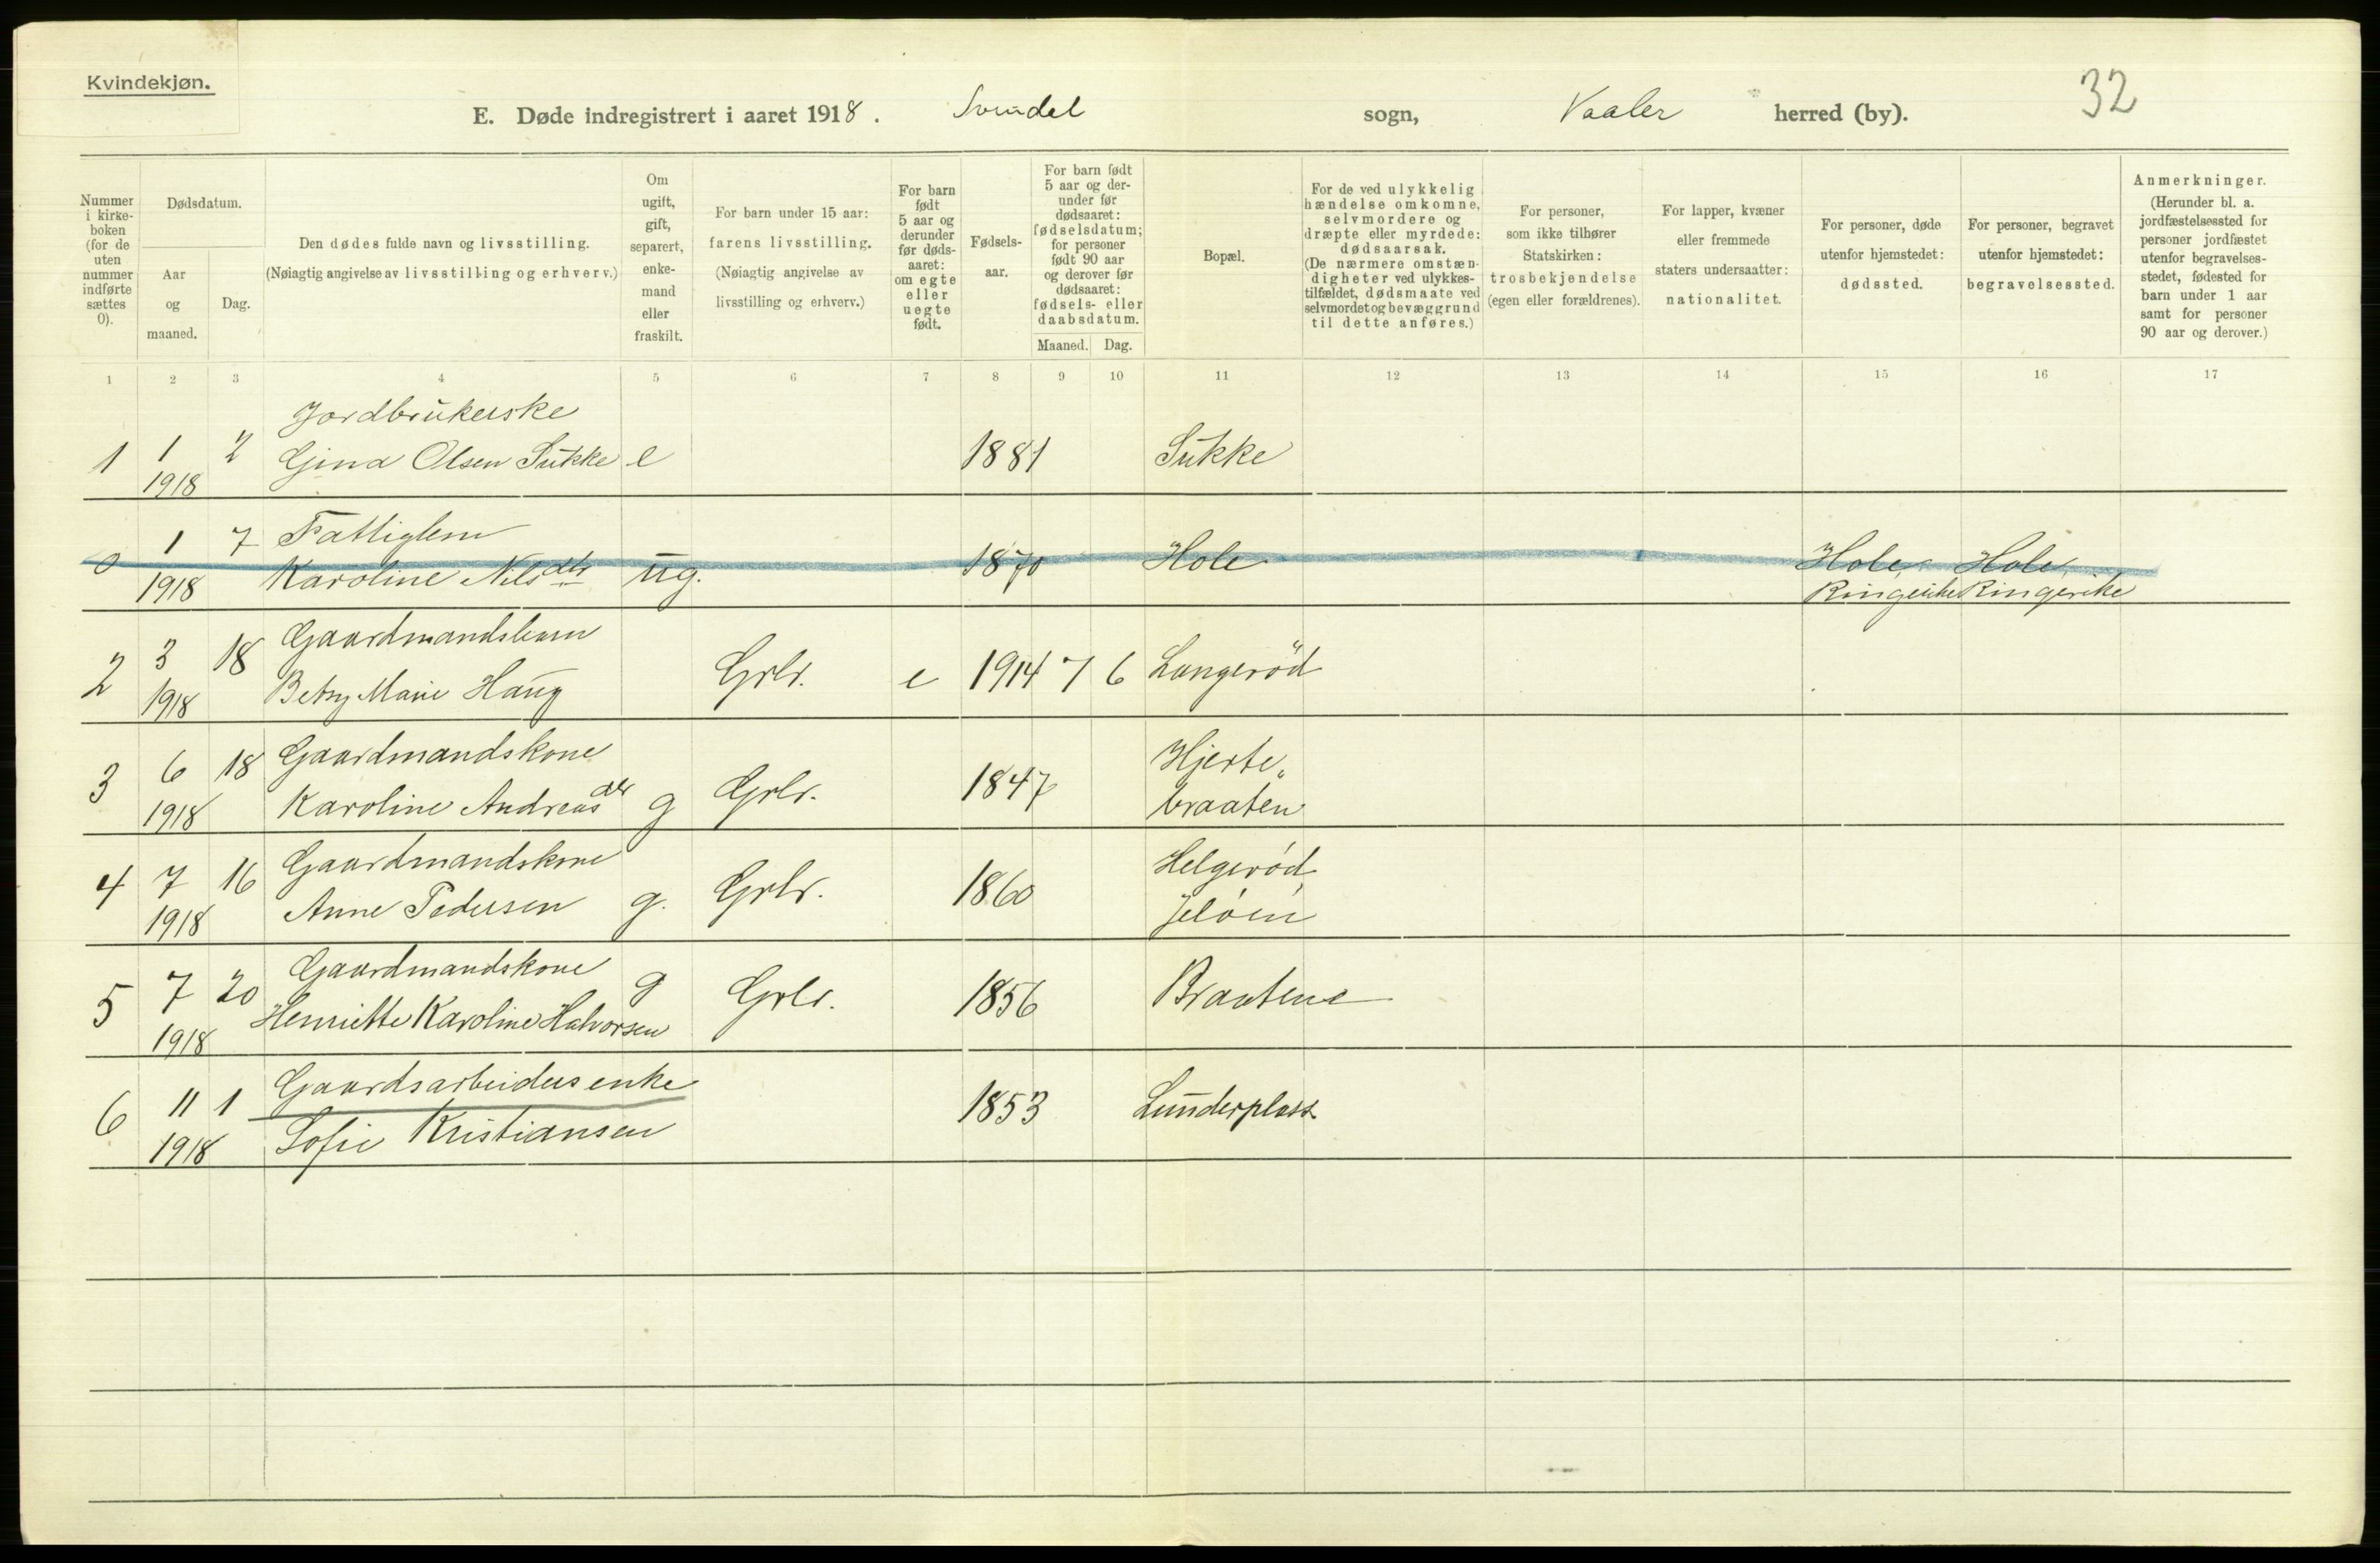 Kvindekjøn.
32
E. Døde indregistrert i aaret 1918. Svindal sogn, Vaaler herred (by).
Nummer i kirke-boken (for de uten nummer indførte sættes 0).
Dødsdatum.
Aar og maaned.
Dag.
Den dødes fulde navn og livsstilling.
(Nøiagtig angivelse av livsstilling og erhverv.)
Om ugift, gift, separert, enke-mand eller fraskilt.
For barn under 15 aar: farens livsstilling.
(Nøiagtig angivelse av livsstilling og erhverv.)
For barn født 5 aar og derunder før døds-aaret: om egte eller uegte født.
Fødsels-aar.
For barn født 5 aar og der-under før dødsaaret: fødselsdatum; for personer født 90 aar og derover før dødsaaret: fødsels- eller daabsdatum.
Maaned. Dag.
Bopæl.
For de ved ulykkelig hændelse omkomne, selvmordere og dræpte eller myrdede: dødsaarsak.
(De nærmere omstæn-digheter ved ulykkes-tilfældet, dødsmaate ved selvmordet og bevæggrund til dette anføres.)
For personer, som ikke tilhører Statskirken: trosbekjendelse (egen eller forældrenes).
For lapper, kvæner eller fremmede staters undersaatter: nationalitet.
For personer, døde utenfor hjemstedet: dødssted.
For personer, begravet utenfor hjemstedet: begravelsessted.
Anmerkninger.
(Herunder bl. a. jordfæstelsessted for personer jordfæstet utenfor begravelses-stedet, fødested for barn under 1 aar samt for personer 90 aar og derover.)
1 2 3 4 5 6 7 8 9 10 11 12 13 14 15 16 17
Jordbrukerske
1 1 2 Gina Olsen Sukke e 1881 Sukke
1918
1 7 Fattiglem
0 1918 Karoline Nilsdtr ug. 1870 Hole Hole, Hole,
Ringerike Ringerike
3 18 Gaardmandsbarn
2 1918 Betsy Marie Haug Grlr. e 1914 7 6 Langerød
6 18 Gaardmandskone Hjerte„
3 1918 Karoline Andreasdtr g Grlr. 1847 braaten
7 16 Gaardmandskone Helgerød,
4 1918 Anne Pedersen g. Grlr. 1860 Jeløen
7 20 Gaardmandskone g Grlr. 1856 Braatene
5 1918 Henriette Karoline Halvorsen
11 1 Gaardsarbeidersenke 1853 Lunderplass
6 1918 Sofie Kristiansen